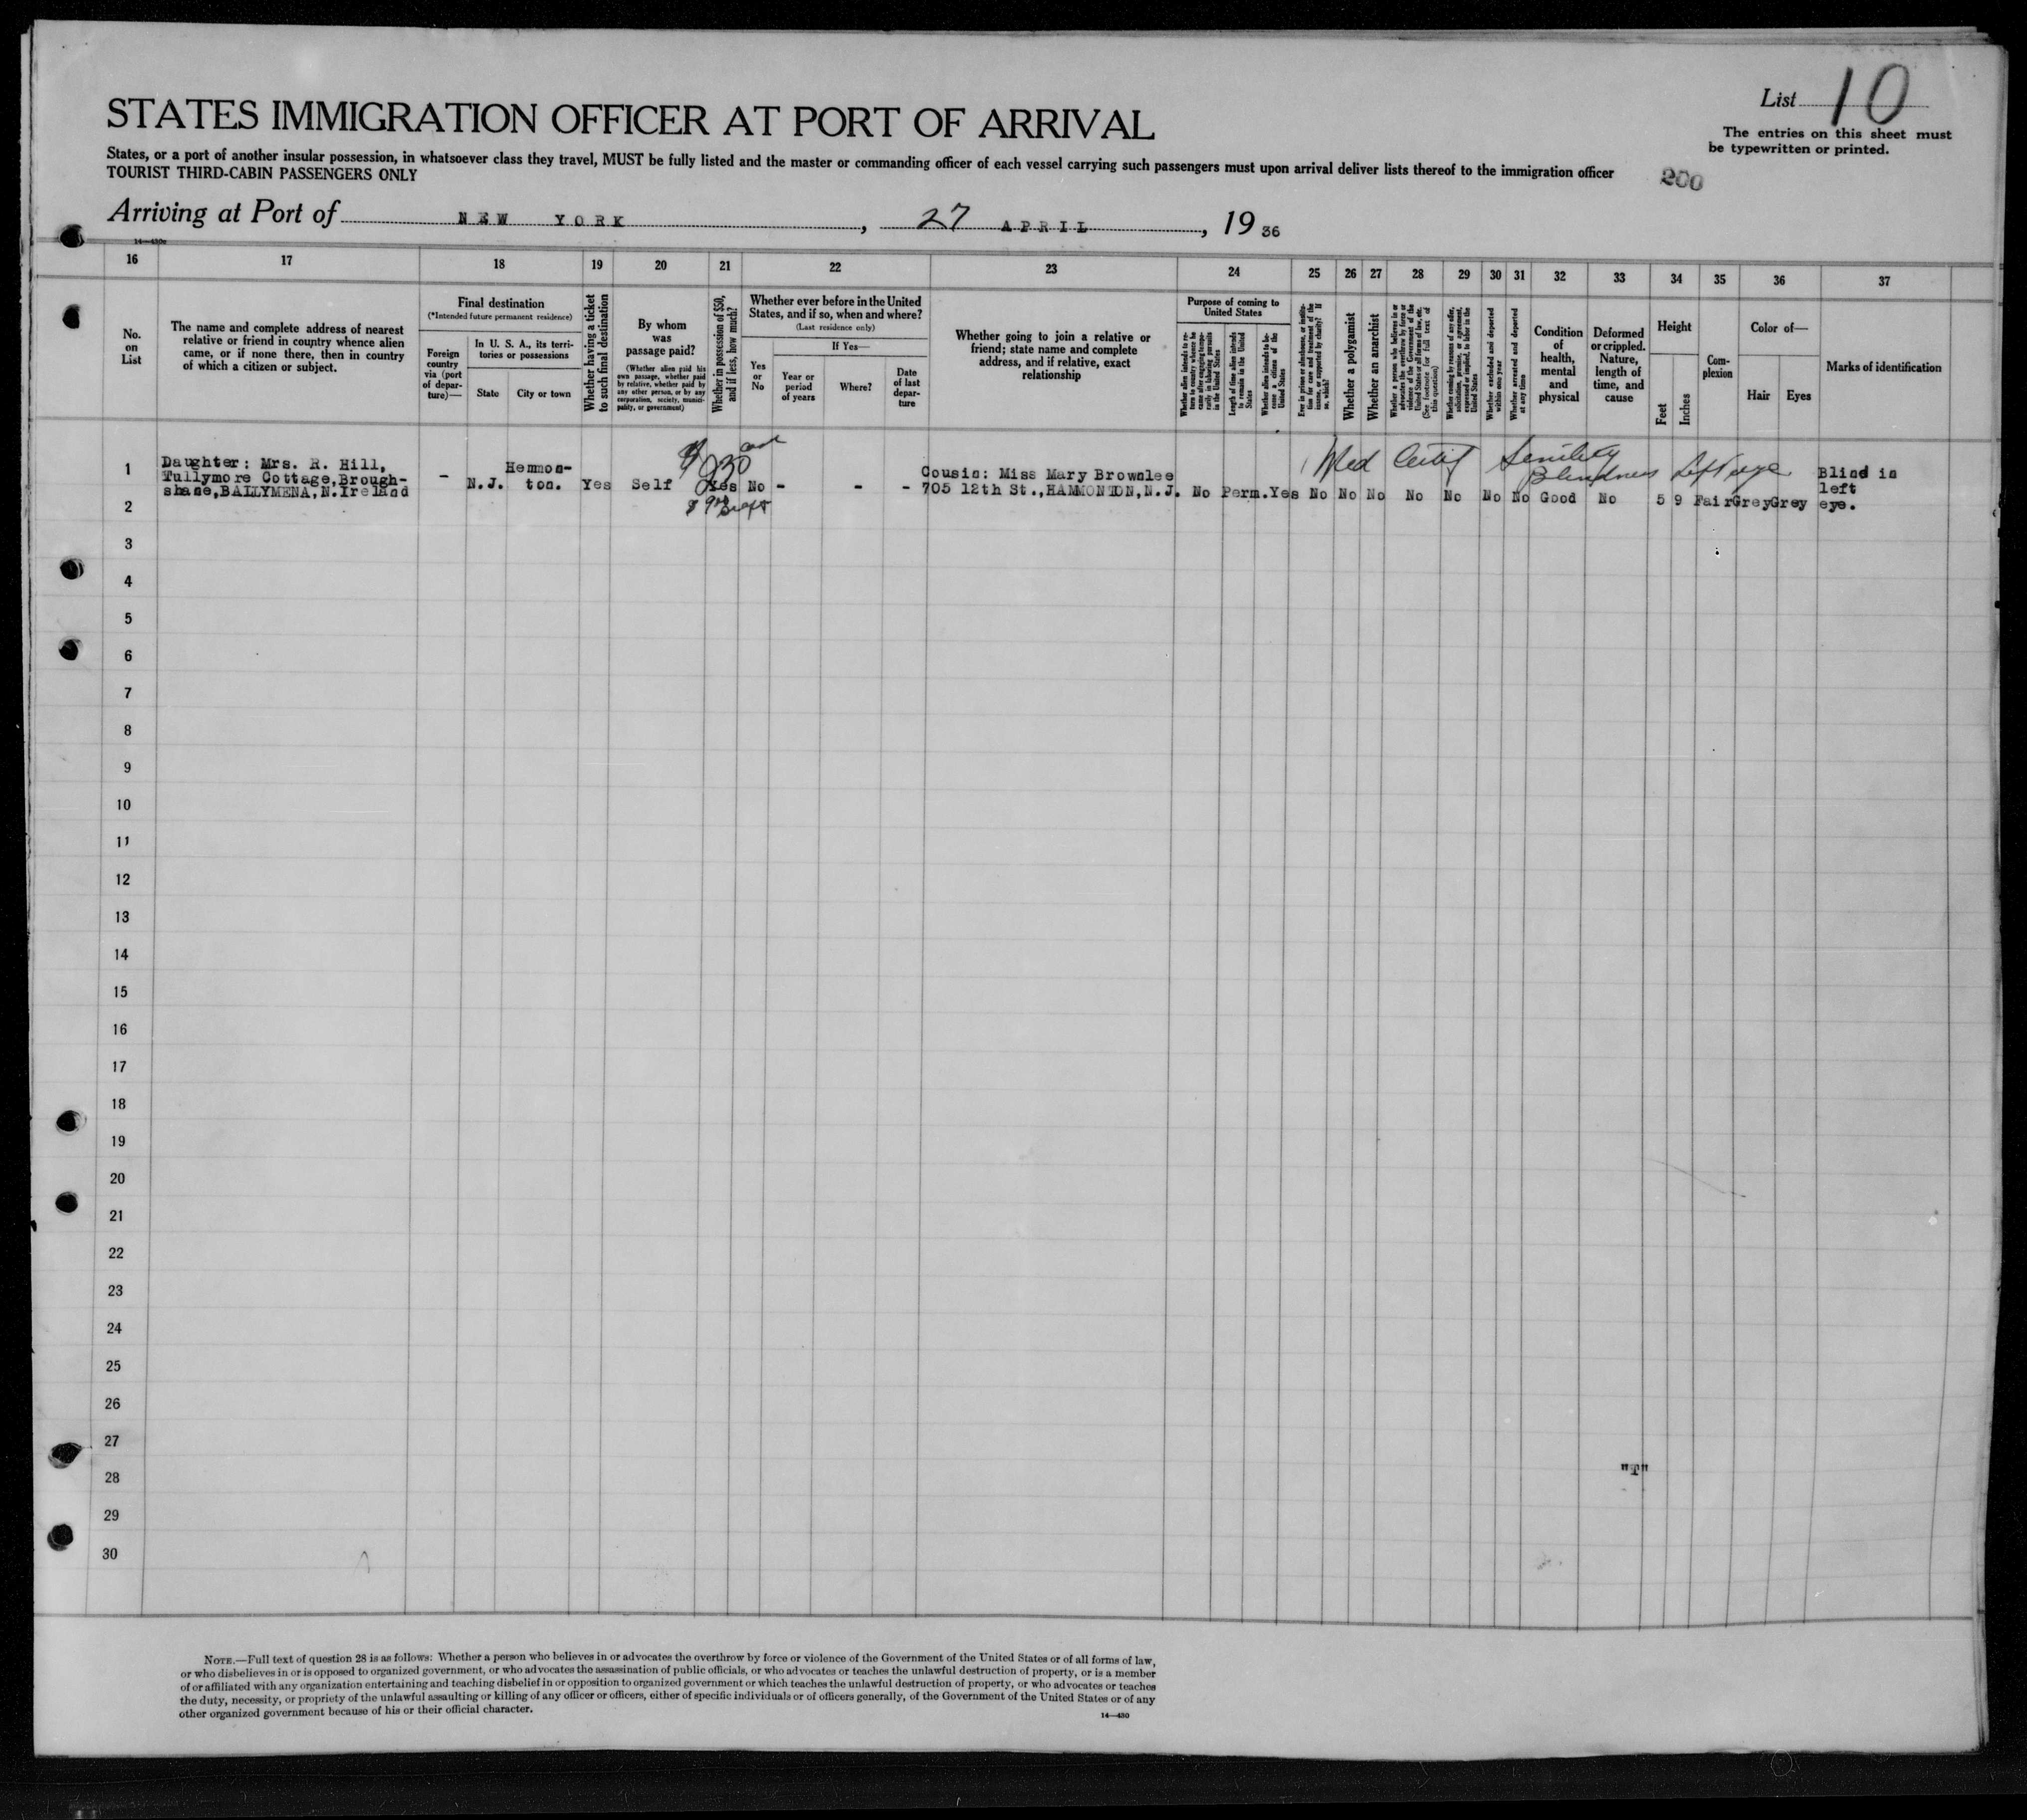 List 10
The entries on this sheet must
be typewritten or printed.
STATES IMMIGRATION OFFICER AT PORT OF ARRIVAL
States, or a port of another insular possession, in whatsoever class they travel, MUST be fully listed and the master or commanding officer of each vessel carrying such passengers must upon arrival deliver lists thereof to the immigration officer
TOURIST THIRD-CABIN PASSENGERS ONLY
200
Arriving at Port of NEW YORK, 27 APRIL, 19 36
14—430
16 17 18 19 20 21 22 23 24 25 26 27 28 29 30 31 32 33 34 35 36 37
No.
on
List
The name and complete address of nearest
relative or friend in country whence alien
came, or if none there, then in country
of which a citizen or subject.
Final destination
(*Intended future permanent residence)
Foreign
country
via (port
of depar-
ture)—
In U. S. A., its terri-
tories or possessions
State
City or town
Whether having a ticket
to such final destination
By whom
was
passage paid?
(Whether alien paid his
own passage, whether paid
by relative, whether paid by
any other person, or by any
corporation, society, munici-
pality, or government)
Whether in possession of $50,
and if less, how much?
Whether ever before in the United
States, and if so, when and where?
(Last residence only)
Yes
or
No
If Yes—
Year or
period
of years
Where?
Date
of last
depar-
ture
Whether going to join a relative or
friend; state name and complete
address, and if relative, exact
relationship
Purpose of coming to
United States
Whether alien intends to re-
turn to country whence he
came after engaging tempo-
rarily in laboring pursuits
in the United States
Length of time alien intends
to remain in the United
States
Whether alien intends to be-
come a citizen of the
United States
Ever in prison or almshouse, or institu-
tion for care and treatment of the
insane, or supported by charity? If
so, which?
Whether a polygamist
Whether an anarchist
Whether a person who believes in or
advocates the overthrow by force or
violence of the Government of the
United States or all forms of law, etc.
(See footnote for full text of
this question)
Whether coming by reasons of any offer,
solicitation, promise, or agreement,
expressed or implied, to labor in the
United States
Whether excluded and deported
within one year
Whether arrested and deported
at any time
Condition
of
health,
mental
and
physical
Deformed
or crippled.
Nature,
length of
time, and
cause
Height
Feet
Inches
Com-
plexion
Color of—
Hair
Eyes
Marks of identification
1
Daughter: Mrs. R. Hill,
Tullymore Cottage, Brough-
shane, BALLYMENA, N.Ireland
-
N.J.
Hemmon-
ton.
Yes
Self
Yes
No - - -
Cousin: Miss Mary Brownlee
705 12th St., HAMMONTON, N.J.
No Perm. Yes No No No No No No No Good No 5 9 Fair Grey Grey
Med Certif Senility
Blindness Left eye
Blind in
left
eye.
2
3
4
5
6
7
8
9
10
11
12
13
14
15
16
17
18
19
20
21
22
23
24
25
26
27
28
"T"
29
30
NOTE.—Full text of question 28 is as follows: Whether a person who believes in or advocates the overthrow by force or violence of the Government of the United States or of all forms of law,
or who disbelieves in or is opposed to organized government, or who advocates the assassination of public officials, or who advocates or teaches the unlawful destruction of property, or is a member
of or affiliated with any organization entertaining and teaching disbelief in or opposition to organized government or which teaches the unlawful destruction of property, or who advocates or teaches
the duty, necessity, or propriety of the unlawful assaulting or killing of any officer or officers, either of specific individuals or of officers generally, of the Government of the United States or of any
other organized government because of his or their official character.
14—430